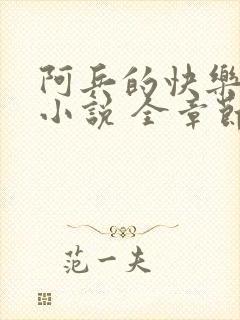 阿兵的快樂
小說 全章節
范一夫